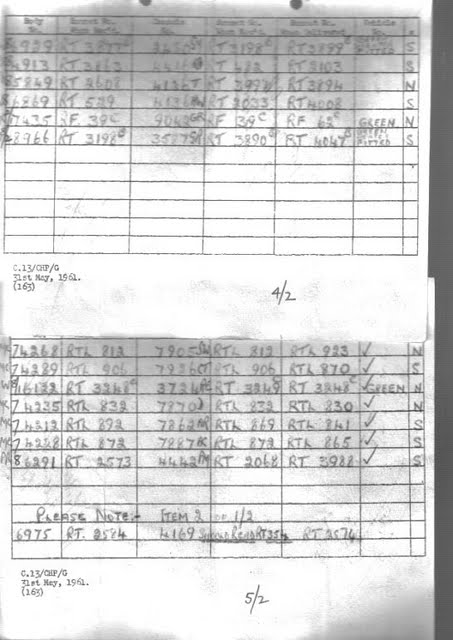 Body No. Bonnet No. When Rec'd. Chassis No. Bonnet No. When Rec'd. Bonnet No. When Delivered. Vehicle No.
4929 RT 3877 RT 3198 RT 3899 FITTED S
4913 RT 3863 RT 482 RT 2103 S
5849 RT 2608 4126 RT RT 3894 N
6869 RT 529 4136 RT 2033 RT 4008 S
7435 RF 39C 9043 GR RF 39C RF 62C GREEN N
8966 RT 3198 3587 RT 3890 RT 4047 FITTED S
C.13/CHP/G
31st May, 1961.
(163)
4/2
74268 RTL 812 7905 RTL 812 RTL 923 ✓ N
74289 RTL 906 7926 RTL 906 RTL 870 ✓ S
16122 RT 3248C 3724 RT 3248 RT 3248C ✓ GREEN N
74235 RTL 832 7870 RTL 832 RTL 830 ✓ N
74212 RTL 892 7862 RTL 869 RTL 841 ✓ S
74228 RTL 872 7887 RTL 872 RTL 865 ✓ S
86291 RT 2573 4442 RT 2068 RT 3988 ✓ S
PLEASE NOTE:- ITEM 2 OF 1/2
6975 RT. 2584 4169 SHOULD READ RT354 RT 2574
C.13/CHP/G
31st May, 1961.
(163)
5/2